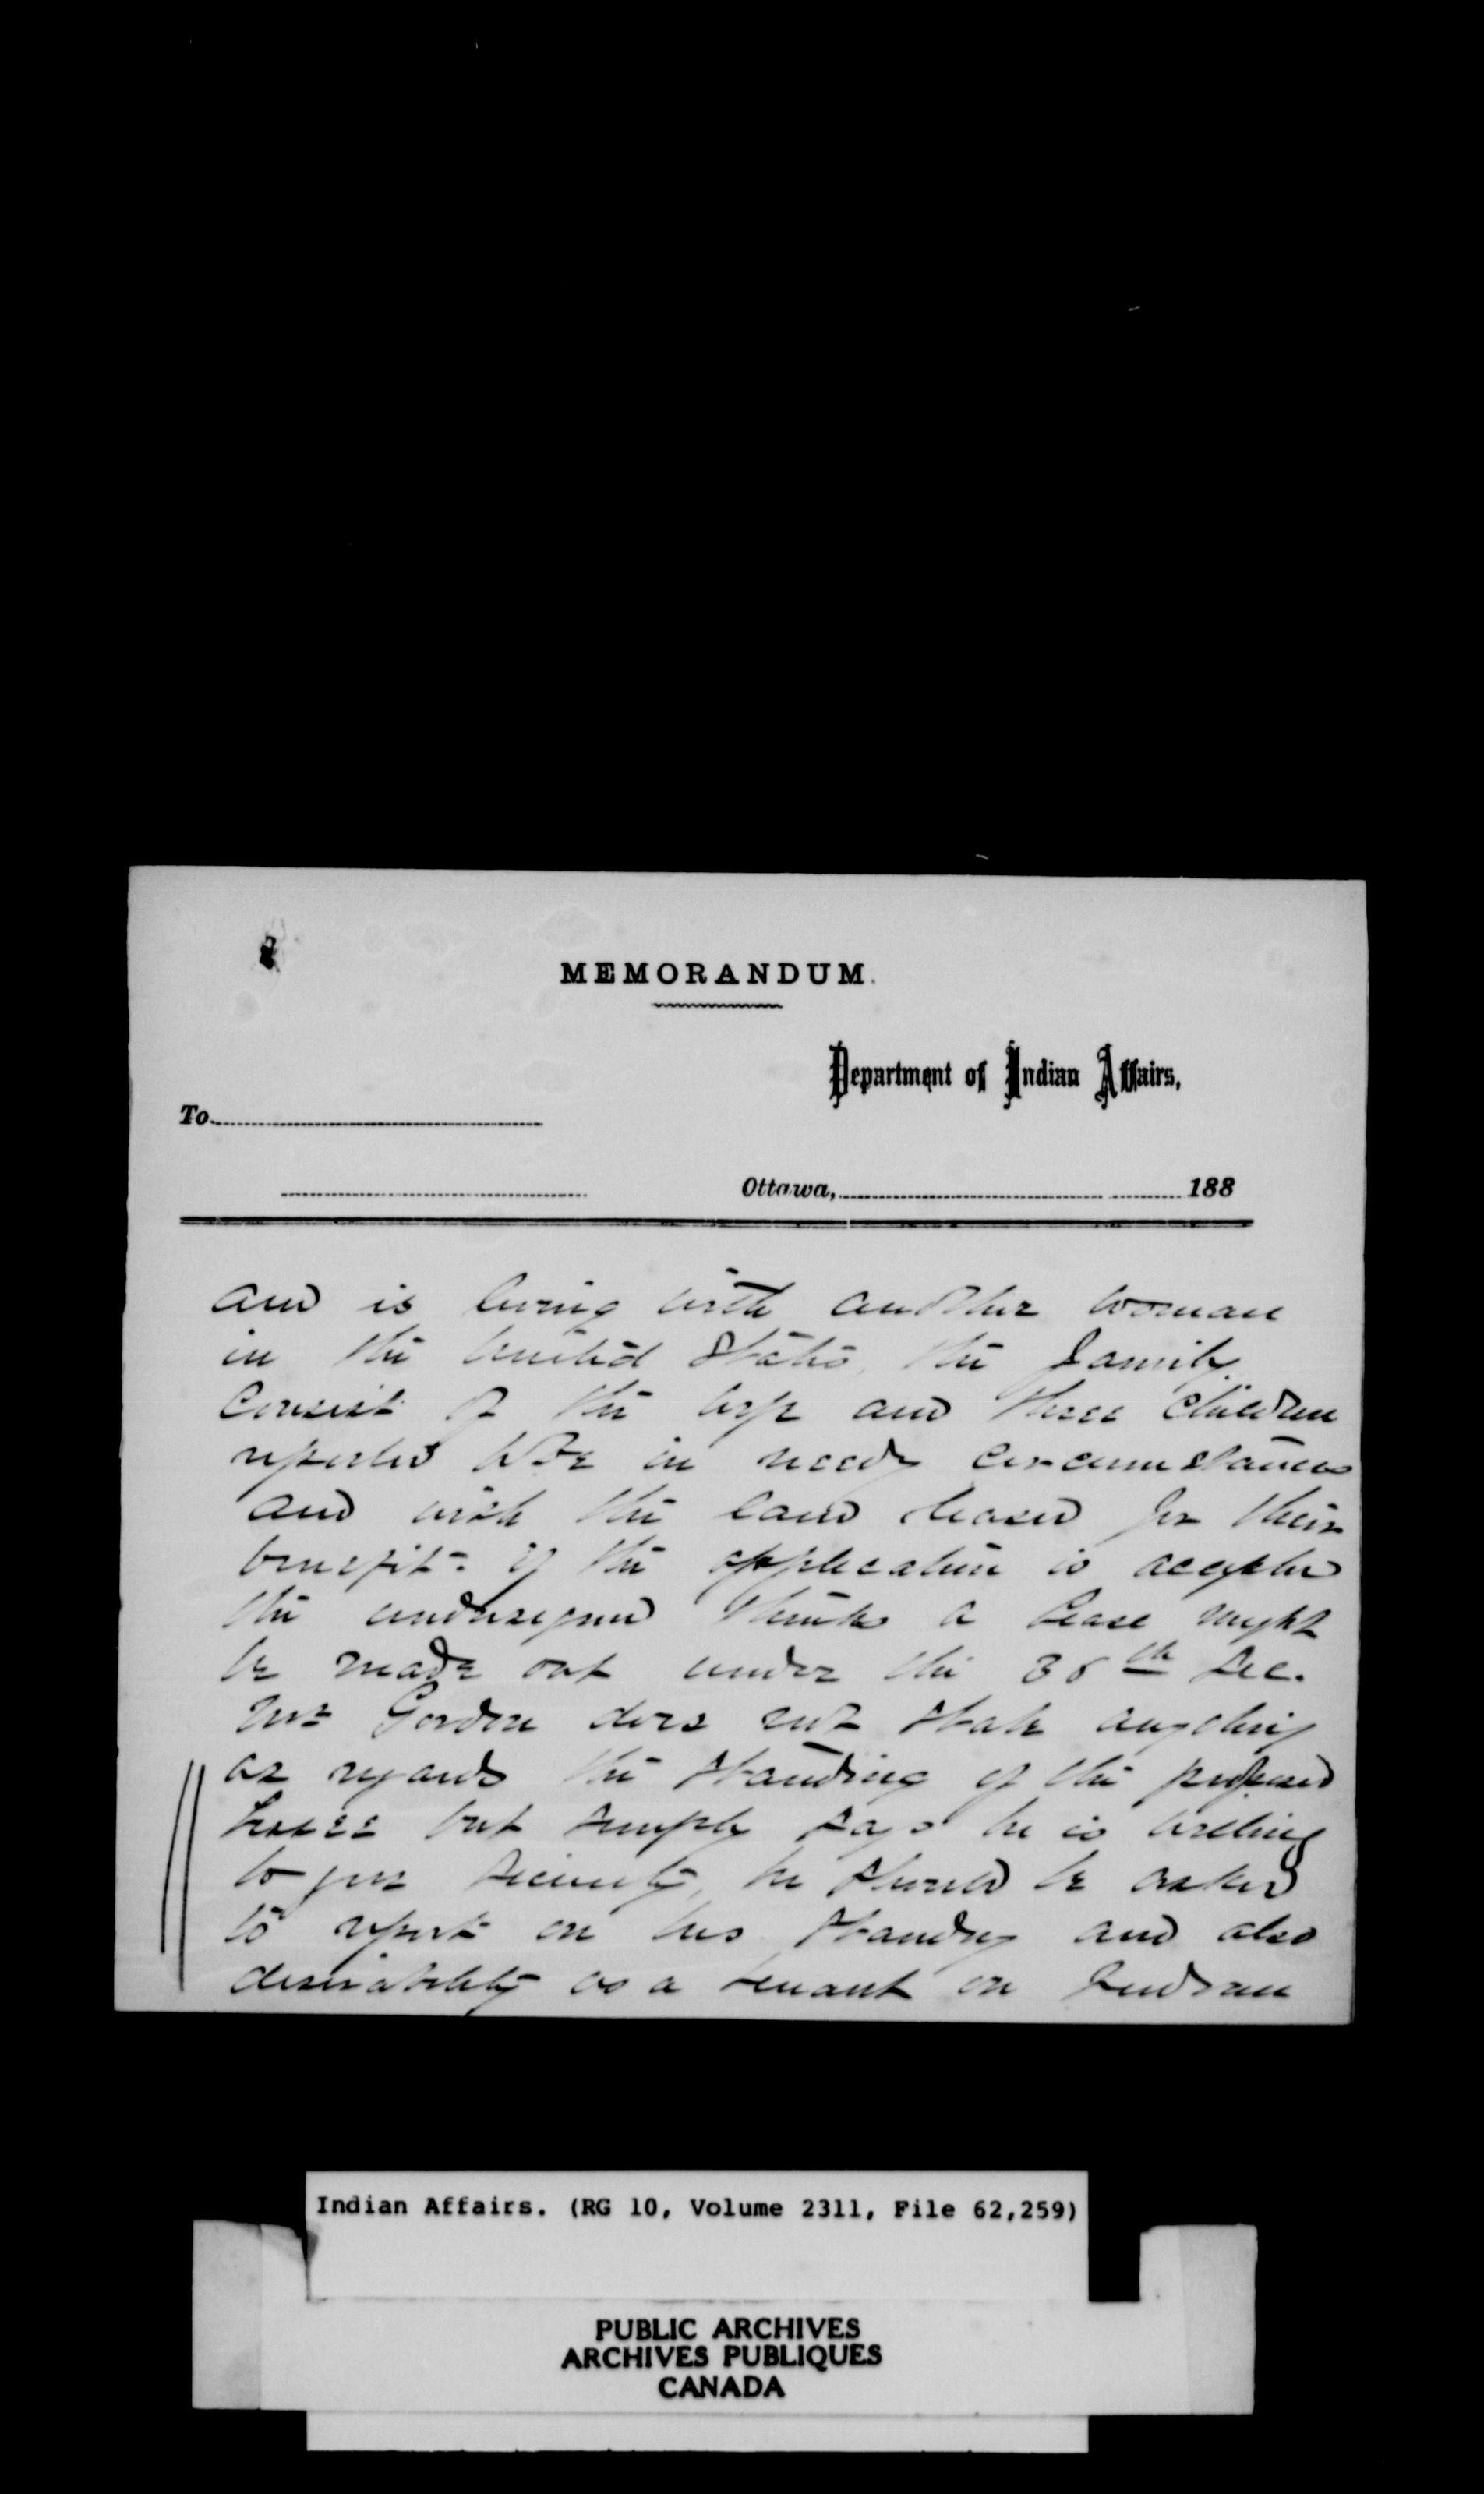 2
MEMORANDUM.
Department of Indian Affairs,
To
Ottawa, 188
and is living with another woman
in the United States, the family
consist of the wife and three children
reported to be in needy circumstances
and wish the land leased for their
benefit. If the application is accepted
the undersigned thinks a lease might
be made out under the 38th Sec.
Mr Gordon does not state anything
as regards the standing of the proposed
lessee but simply says he is willing
to give security, he should be asked
to report on his standing and also
desirability as a tenant on Indian
Indian Affairs. (RG 10, Volume 2311, File 62,259)
PUBLIC ARCHIVES
ARCHIVES PUBLIQUES
CANADA